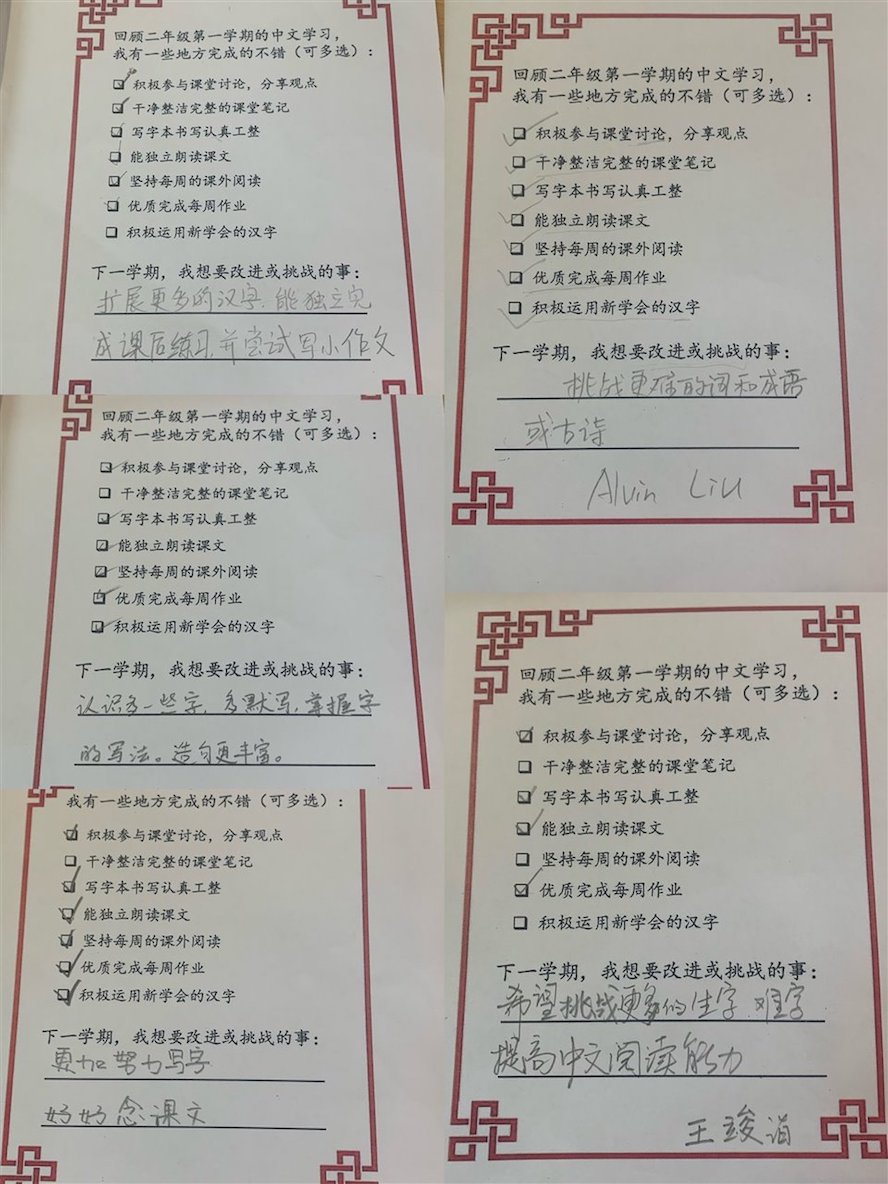 回顾二年级第一学期的中文学习，
我有一些地方完成的不错（可多选）：
积极参与课堂讨论，分享观点
干净整洁完整的课堂笔记
写字本书写认真工整
能独立朗读课文
坚持每周的课外阅读
优质完成每周作业
积极运用新学会的汉字
下一学期，我想要改进或挑战的事：
扩展更多的汉字，能独立完
成课后练习，并尝试写小作文
回顾二年级第一学期的中文学习，
我有一些地方完成的不错（可多选）：
积极参与课堂讨论，分享观点
干净整洁完整的课堂笔记
写字本书写认真工整
能独立朗读课文
坚持每周的课外阅读
优质完成每周作业
积极运用新学会的汉字
下一学期，我想要改进或挑战的事：
认识多一些字，多默写，掌握字
的写法。造句更丰富。
我有一些地方完成的不错（可多选）：
积极参与课堂讨论，分享观点
干净整洁完整的课堂笔记
写字本书写认真工整
能独立朗读课文
坚持每周的课外阅读
优质完成每周作业
积极运用新学会的汉字
下一学期，我想要改进或挑战的事：
更加努力写字
好好念课文
回顾二年级第一学期的中文学习，
我有一些地方完成的不错（可多选）：
积极参与课堂讨论，分享观点
干净整洁完整的课堂笔记
写字本书写认真工整
能独立朗读课文
坚持每周的课外阅读
优质完成每周作业
积极运用新学会的汉字
下一学期，我想要改进或挑战的事：
挑战更难的词和成语
或古诗
Alvin Liu
回顾二年级第一学期的中文学习，
我有一些地方完成的不错（可多选）：
积极参与课堂讨论，分享观点
干净整洁完整的课堂笔记
写字本书写认真工整
能独立朗读课文
坚持每周的课外阅读
优质完成每周作业
积极运用新学会的汉字
下一学期，我想要改进或挑战的事：
希望挑战更多的生字、难字
提高中文阅读能力
王竣